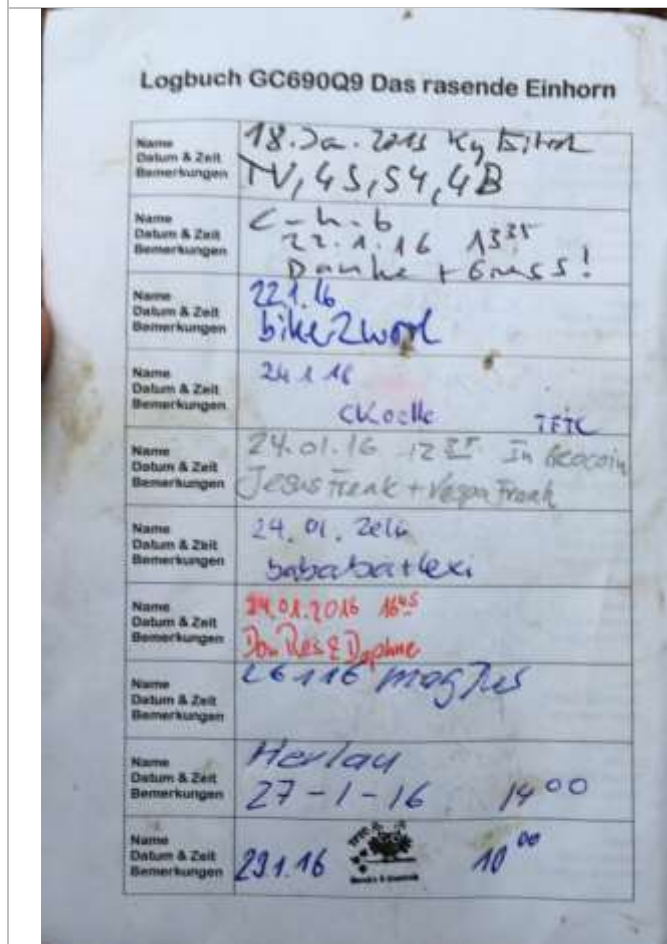 Logbuch GC690Q9 Das rasende Einhorn
Name
Datum & Zeit
Bemerkungen
18. Ja.
TV, 4S, S4, 4B
Name
Datum & Zeit
Bemerkungen
c-h-b
22.1.16 13 35
Danke + Gruss!
Name
Datum & Zeit
Bemerkungen
22.1.16
Name
Datum & Zeit
Bemerkungen
24 1 16
CKoelle TFTC
Name
Datum & Zeit
Bemerkungen
24.01.16 In
Jesus Freak + Vegan Freak
Name
Datum & Zeit
Bemerkungen
24. 01. 2016
bababa+lexi
Name
Datum & Zeit
Bemerkungen
24.01.2016 16 45
Don Res & Daphne
Name
Datum & Zeit
Bemerkungen
26 1 16
Name
Datum & Zeit
Bemerkungen
Herlau
27-1-16 14 00
Name
Datum & Zeit
Bemerkungen
29.1.16 10 00